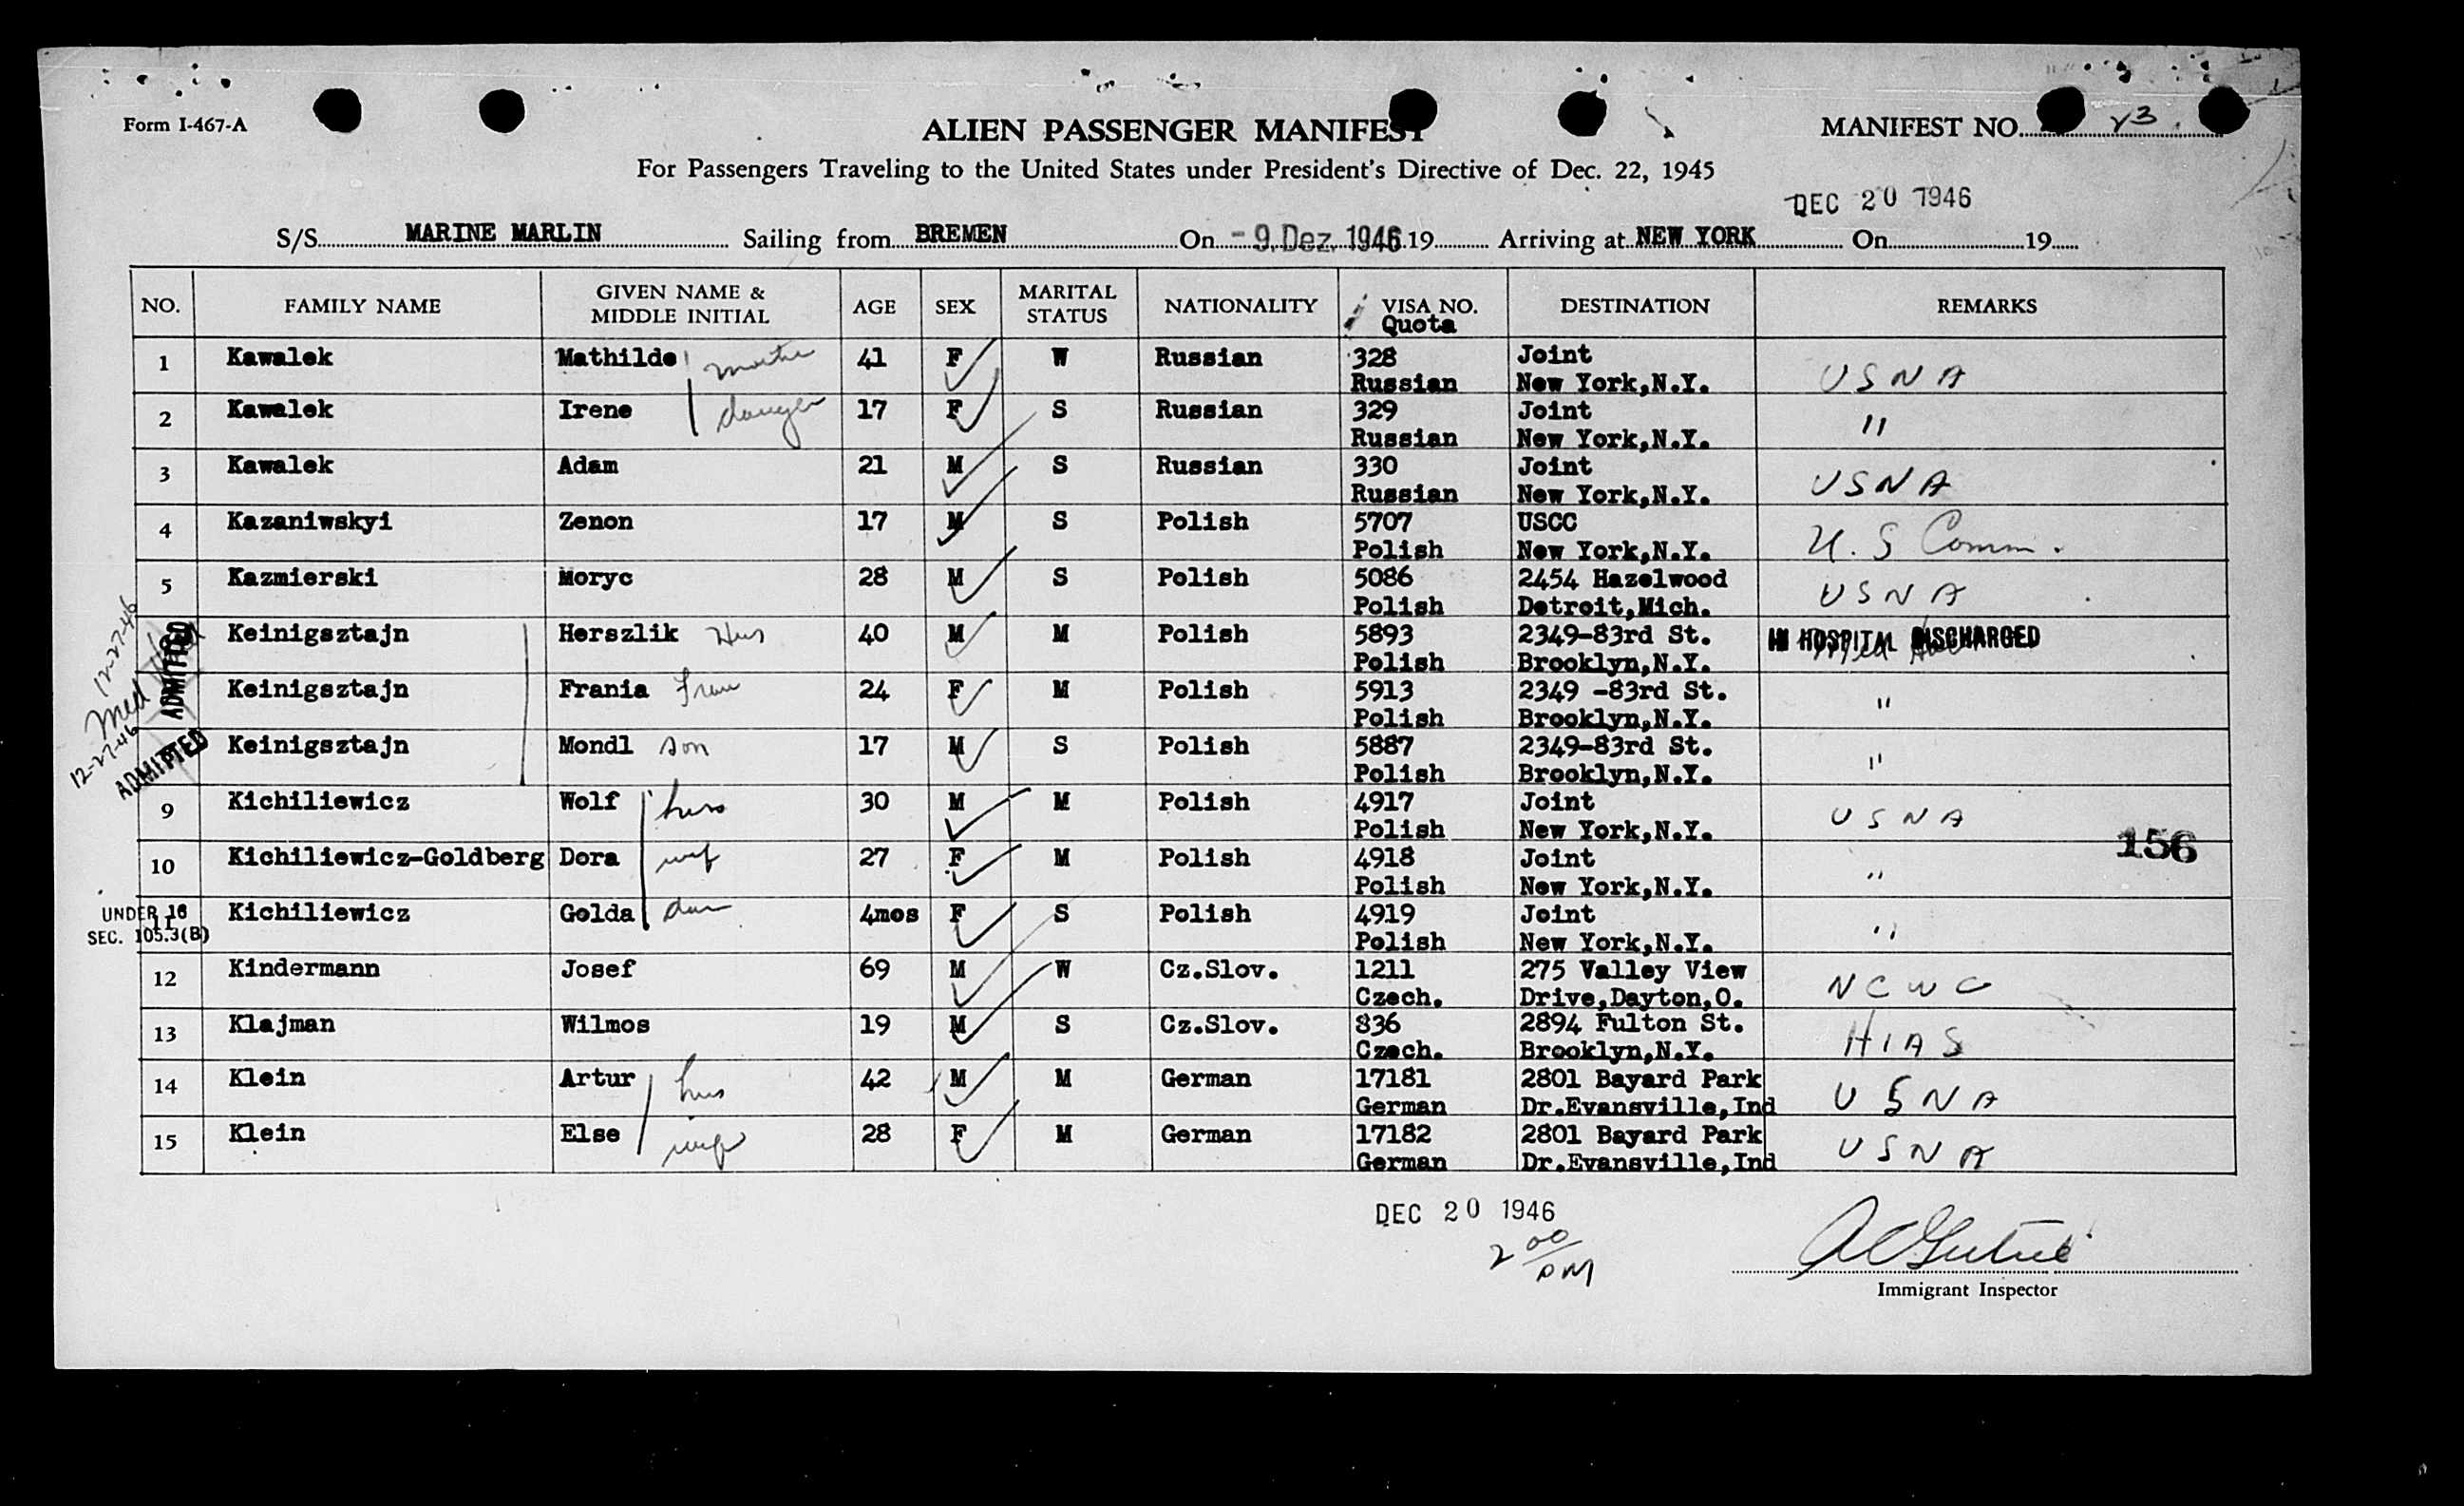 Form I-467-A
ALIEN PASSENGER MANIFEST
MANIFEST NO. 23
For Passengers Traveling to the United States under President's Directive of Dec. 22, 1945
DEC 20 1946
S/S MARINE MARLIN Sailing from BREMEN On - 9. Dez. 1946 19 Arriving at NEW YORK On 19
NO. FAMILY NAME GIVEN NAME & MIDDLE INITIAL AGE SEX MARITAL STATUS NATIONALITY VISA NO. Quota DESTINATION REMARKS
1 Kawalek Mathilde 41 F W Russian 328 Joint
Russian New York,N.Y. USNA
2 Kawalek Irene 17 F S Russian 329 Joint
Russian New York,N.Y. "
3 Kawalek Adam 21 M S Russian 330 Joint
Russian New York,N.Y. USNA
4 Kazaniwskyi Zenon 17 M S Polish 5707 USCC
Polish New York,N.Y. U. S Comm.
5 Kazmierski Moryc 28 M S Polish 5086 2454 Hazelwood
Polish Detroit,Mich. USNA
Keinigsztajn Herszlik Hus 40 M M Polish 5893 2349-83rd St. IN HOSPITAL DISCHARGED
Polish Brooklyn,N.Y.
Keinigsztajn Frania 24 F M Polish 5913 2349 -83rd St. "
Polish Brooklyn,N.Y.
Keinigsztajn Mondl son 17 M S Polish 5887 2349-83rd St. "
Polish Brooklyn,N.Y.
12-27-46
Med
ADMITTED
12-27-46
ADMITTED
9 Kichiliewicz Wolf hus 30 M M Polish 4917 Joint
Polish New York,N.Y. USNA
156
10 Kichiliewicz-Goldberg Dora wif 27 F M Polish 4918 Joint
Polish New York,N.Y. "
UNDER 16
11 Kichiliewicz Golda dau 4mos F S Polish 4919 Joint
SEC. 105.3(B) Polish New York,N.Y. "
12 Kindermann Josef 69 M W Cz.Slov. 1211 275 Valley View
Czech. Drive,Dayton,O. NCWC
13 Klajman Wilmos 19 M S Cz.Slov. 836 2894 Fulton St.
Czech. Brooklyn,N.Y. HIAS
14 Klein Artur hus 42 M M German 17181 2801 Bayard Park
German Dr.Evansville,Ind USNA
15 Klein Else wif 28 F M German 17182 2801 Bayard Park
German Dr.Evansville,Ind USNA
DEC 20 1946
2 00 PM
Immigrant Inspector